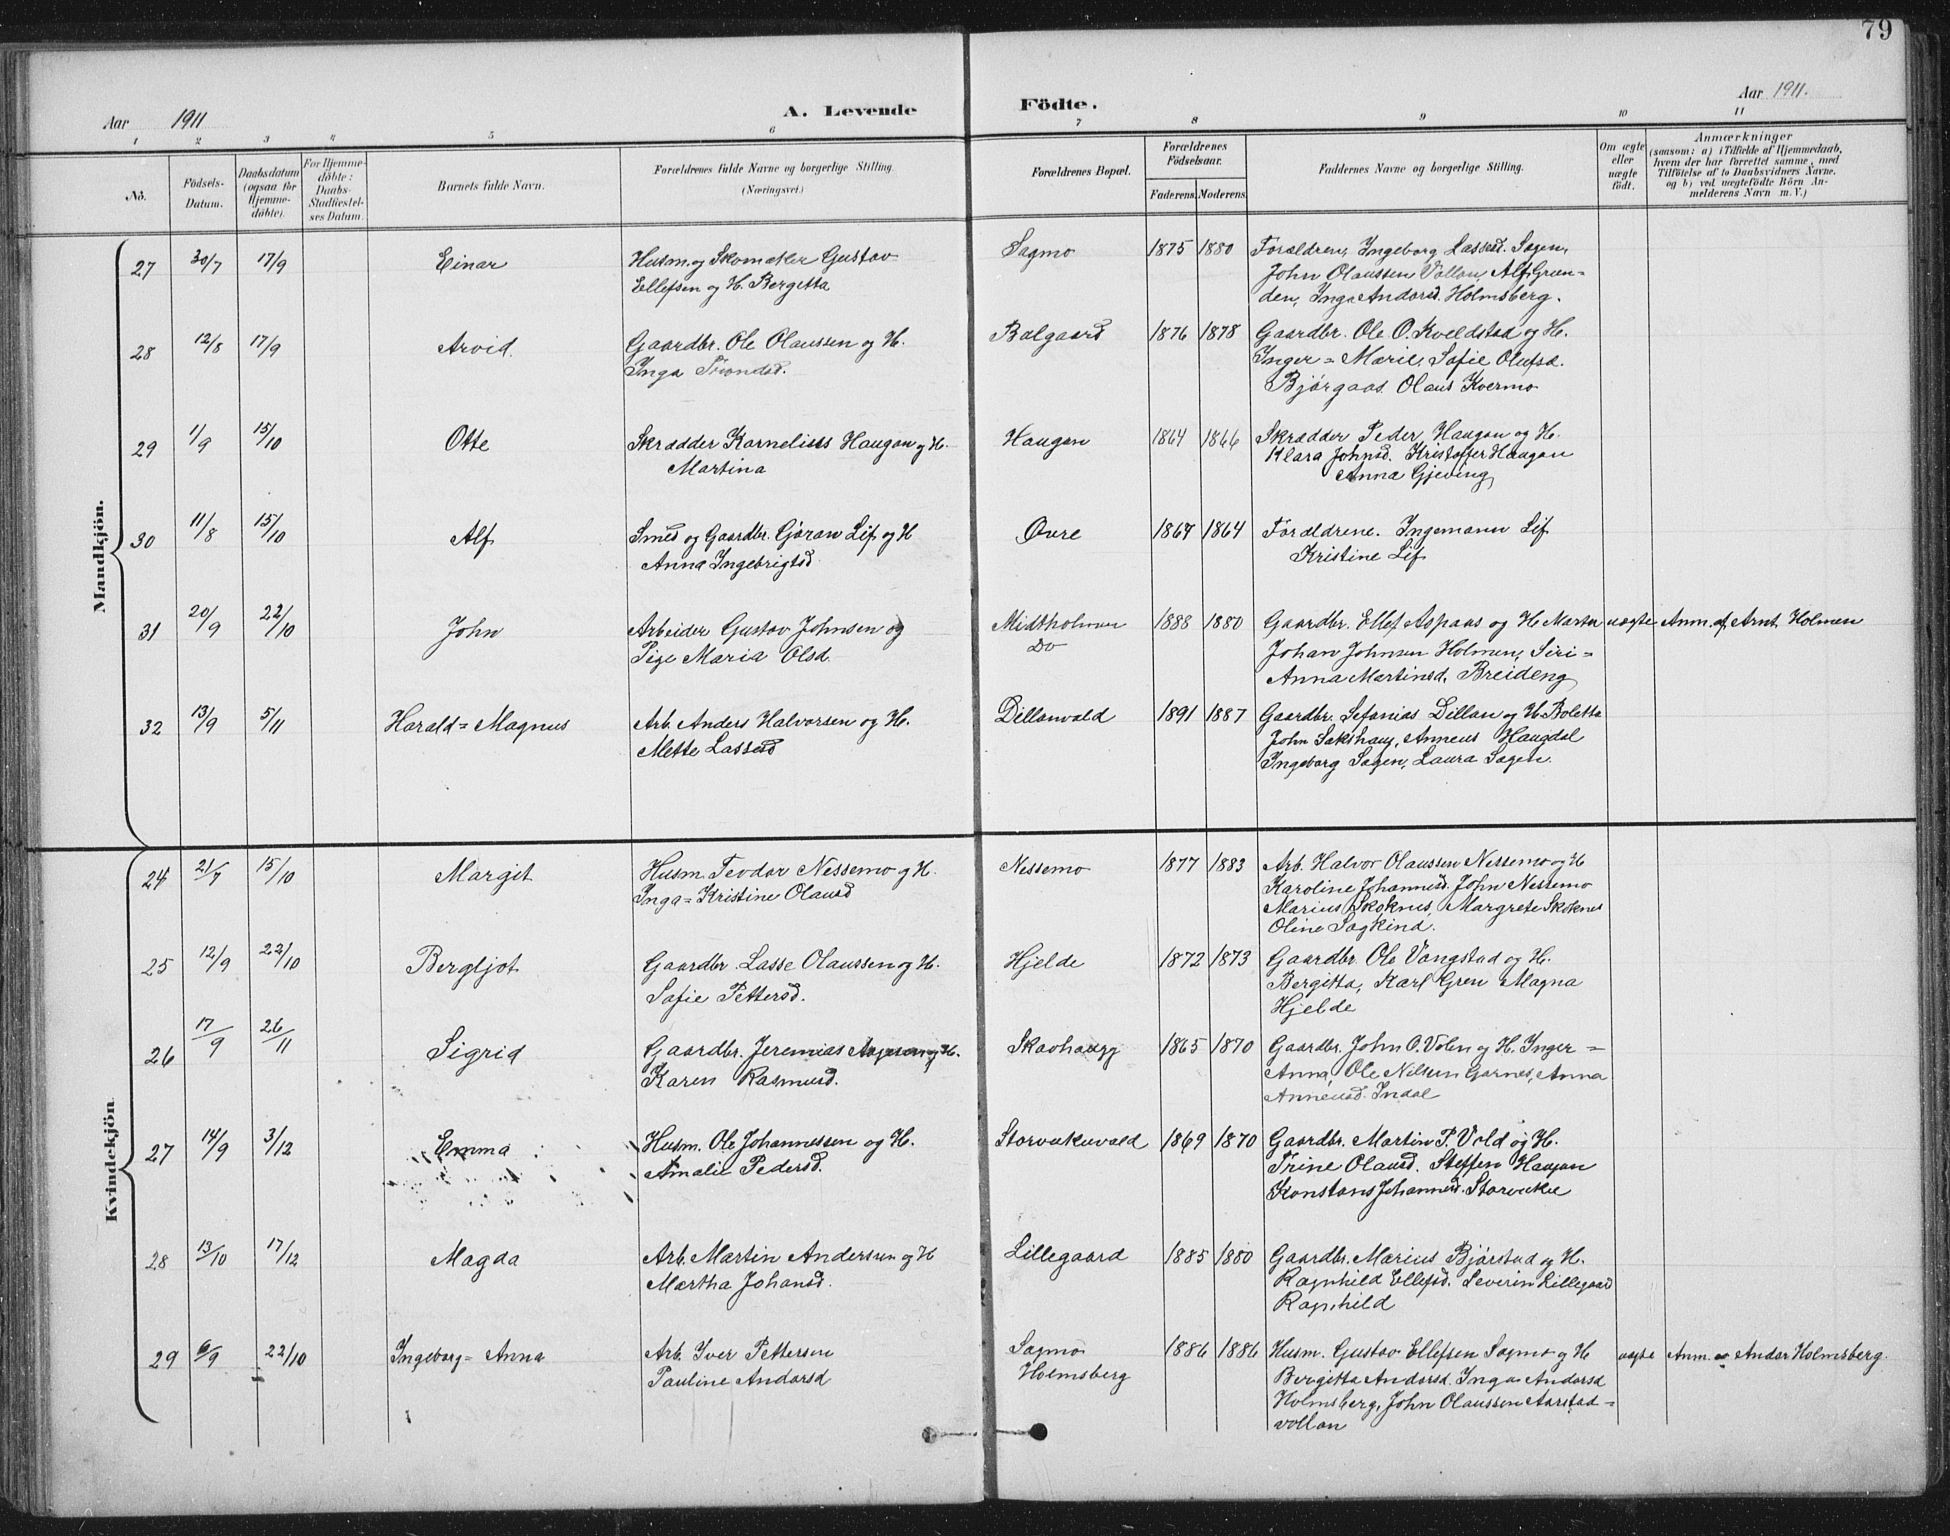 79
Aar 1911 A. Levende Födte. Aar 1911.
1 2 3 4 5 6 7 8 9 10 11
No.
Födsels-
Datum.
Daabsdatum
(ogsaa for
Hjemme-
döbte).
For Hjemme-
döbte:
Daabs-
Stadfæstel-
ses Datum.
Barnets fulde Navn.
Forældrenes fulde Navne og borgerlige Stilling
(Næringsvei.)
Forældrenes Bopæl.
Forældrenes
Födselsaar.
Faderens. Moderens.
Faddernes Navne og borgerlige Stilling.
Om ægte
eller
uægte
födt.
Anmærkninger
(saasom: a) i Tilfælde af Hjemmedaab,
hvem der har forrettet samme, med
Tilföielse af to Daabsvidners Navne,
og b) ved uægtefödte Börn An-
melderens Navn m. V.)
Mandkjön.
27 30/7 17/9 Einar
Husm. og Skomaker Gustav
Ellefsen og H. Bergitta
Sagmo 1875 1880
Forældrene, Ingeborg Lassesd. Sagen,
John Olaussen Vollan, Alf Grun=
den, Inga Andorsd. Holmsberg.
28 12/8 17/9 Arvid.
Gaardbr. Ole Olaussen og H.
Inga Trondsd.
Balgaard 1876 1878
Gaardbr. Ole O. Kveldstad og H.
Inger = Marie, Sofie Olufsd.
Bjørgaas. Olaus Kvermo
29 1/9 15/10 Otte
Skrædder Kornelius Haugan og H.
Martina
Haugan 1864 1866
Skrædder Peder Haugan og H.
Klara Johnsd. Kristoffer Haugan
Anna Gjeving
30 11/8 15/10 Alf
Smed og Gaardbr. Gjøran Lif og H
Anna Ingebrigtsd.
Øvre 1867 1864
Forældrene. Ingemann Lif
Kristine Lif
31 20/9 22/10 John
Arbeider Gustav Johnsen og
Pige Maria Olsd.
Midtholmen
Do
1888 1880
Gaardbr. Ellef Aspaas og H. Marta
Johan Johnsen Holmen, Siri=
Anna Martinsd. Breideng
uægte Anm. af Arnt Holmen
32 13/9 5/11 Harald= Magnus
Arb. Anders Halvorsen og H.
Mette Lassesd
Dillanvald 1891 1887
Gaardbr. Sefanias Dillan og H. Boletta
John Sakshaug, Anneus Haugdal
Ingeborg Sagen, Laura Sagen.
Kvindekjön
24 21/7 15/10 Margit
Husm. Teodor Nessemo og H.
Inga= Kristine Olausd
Nessemo 1877 1883
Arb. Halvor Olaussen Nessemo og H
Karoline Johannesd. John Nessemo
Marius Skoknes, Margrete Skoknes
Oline Sagkind.
25 12/9 22/10 Bergljot
Gaardbr. Lasse Olaussen og H.
Sofie Pettersd.
Hjelde 1872 1873
Gaardbr Ole Vangstad og H.
Bergitta, Karl Gren Magna
Hjelde
26 17/9 26/11 Sigrid
Gaardbr. Jeremias og H.
Karen Rasmusd.
Skavhaugg 1865 1870
Gaardbr. John O. Volen og H. Inger =
Anna, Ole Nilsen Garnes, Anna
Anneusd. Indal
27 14/9 3/12 Emma
Husm. Ole Johannessen og H.
Amalie Pedersd.
Storvukuvald 1869 1870
Gaardbr. Martin P. Vold og H.
Trine Olausd. Steffen Haugan
Konstans Johannesd. Storvuku
28 13/10 17/12 Magda
Arb. Martin Andersen og H
Martha Johansd.
Lillegaard 1885 1880
Gaardbr. Marius Bjørstad og H.
Ragnhild Ellefsd. Severin Lillegaard
Ragnhild
29 6/9 22/10 Ingeborg= Anna
Arb. Iver Pettersen
Pauline Andorsd
Sagmo
Holmsberg
1886 1886
Husm. Gustav Ellefsen Sagmo og H
Bergitta Andorsd. Inga Andorsd
Holmsberg, John Olaussen Aarstad=
vollan
uægte Anm. av Andor Holmsberg.